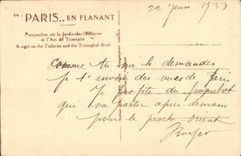 14 - PARIS.. EN FLANANT
Perspective sur le Jardin des Tuileries
et l'Arc de Triomphe
A sight on the Tuileries and the Triumphal Arch
22 juin 1933
Comme tu me le demandes
je t'envoie des vues de Paris
Je profite du paquebot
qui va partir après demain
pour le proche orient